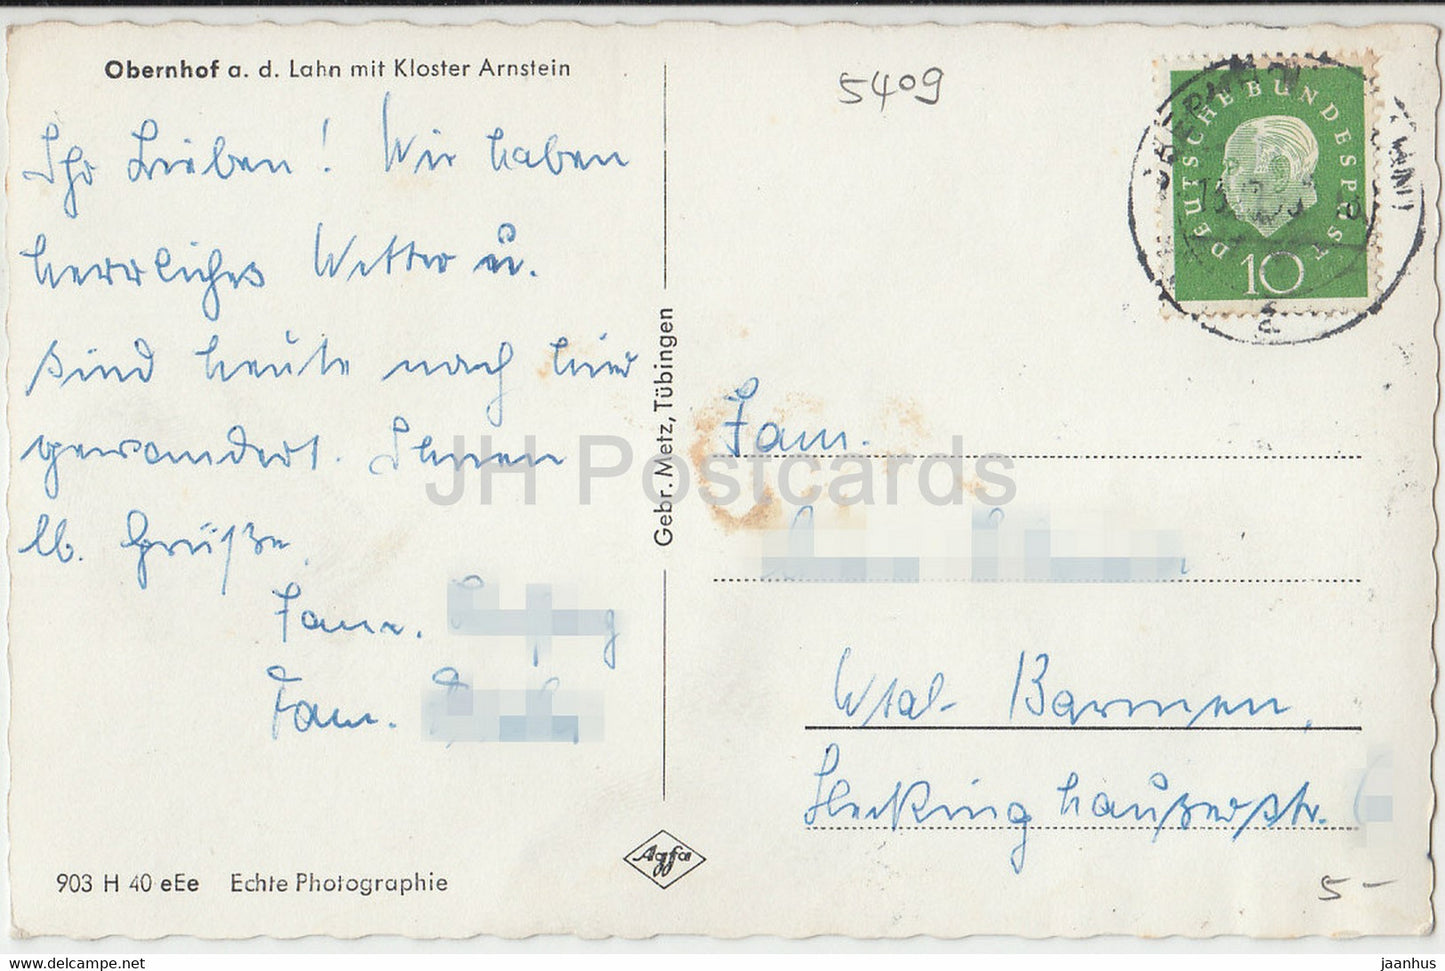 Obernhof a. d. Lahn mit Kloster Arnstein
Ihr Lieben! Wir haben
herrliches Wetter u.
sind heute nach hier
gewandert. Ihnen
lb. Grüße.
Fam.
Fam.
903 H 40 eEe Echte Photographie
Gebr. Metz, Tübingen
Agfa
5409
DEUTSCHE BUNDESPOST
10
Fam.
Wtal-Barmen,
Heckinghauserstr.
5-
JH Postcards
www.delcampe.net
jaanhus